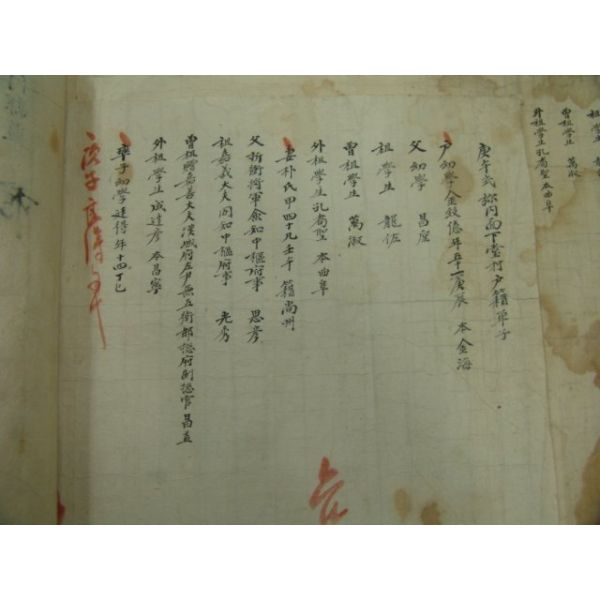 祖學生
曾祖學生 萬淑
外祖學生孔胄聖本曲阜
庚午式 내내面下堂村戶籍單子
戶幼學金致億年五十一庚辰 本金海
父幼學 昌屋
祖學生 龍佐
曾祖學生 萬淑
外祖學生孔胄聖 本曲阜
妻朴氏年四十九壬午 籍尚州
父折衝將軍僉知中樞府事 思彥
祖嘉義大夫同知中樞府事 光秀
曾祖贈嘉善大夫漢城府左尹兼五衛都摠府副摠管昌益
外祖學生成達彥 本昌寧
率子幼學達得年十四丁巳